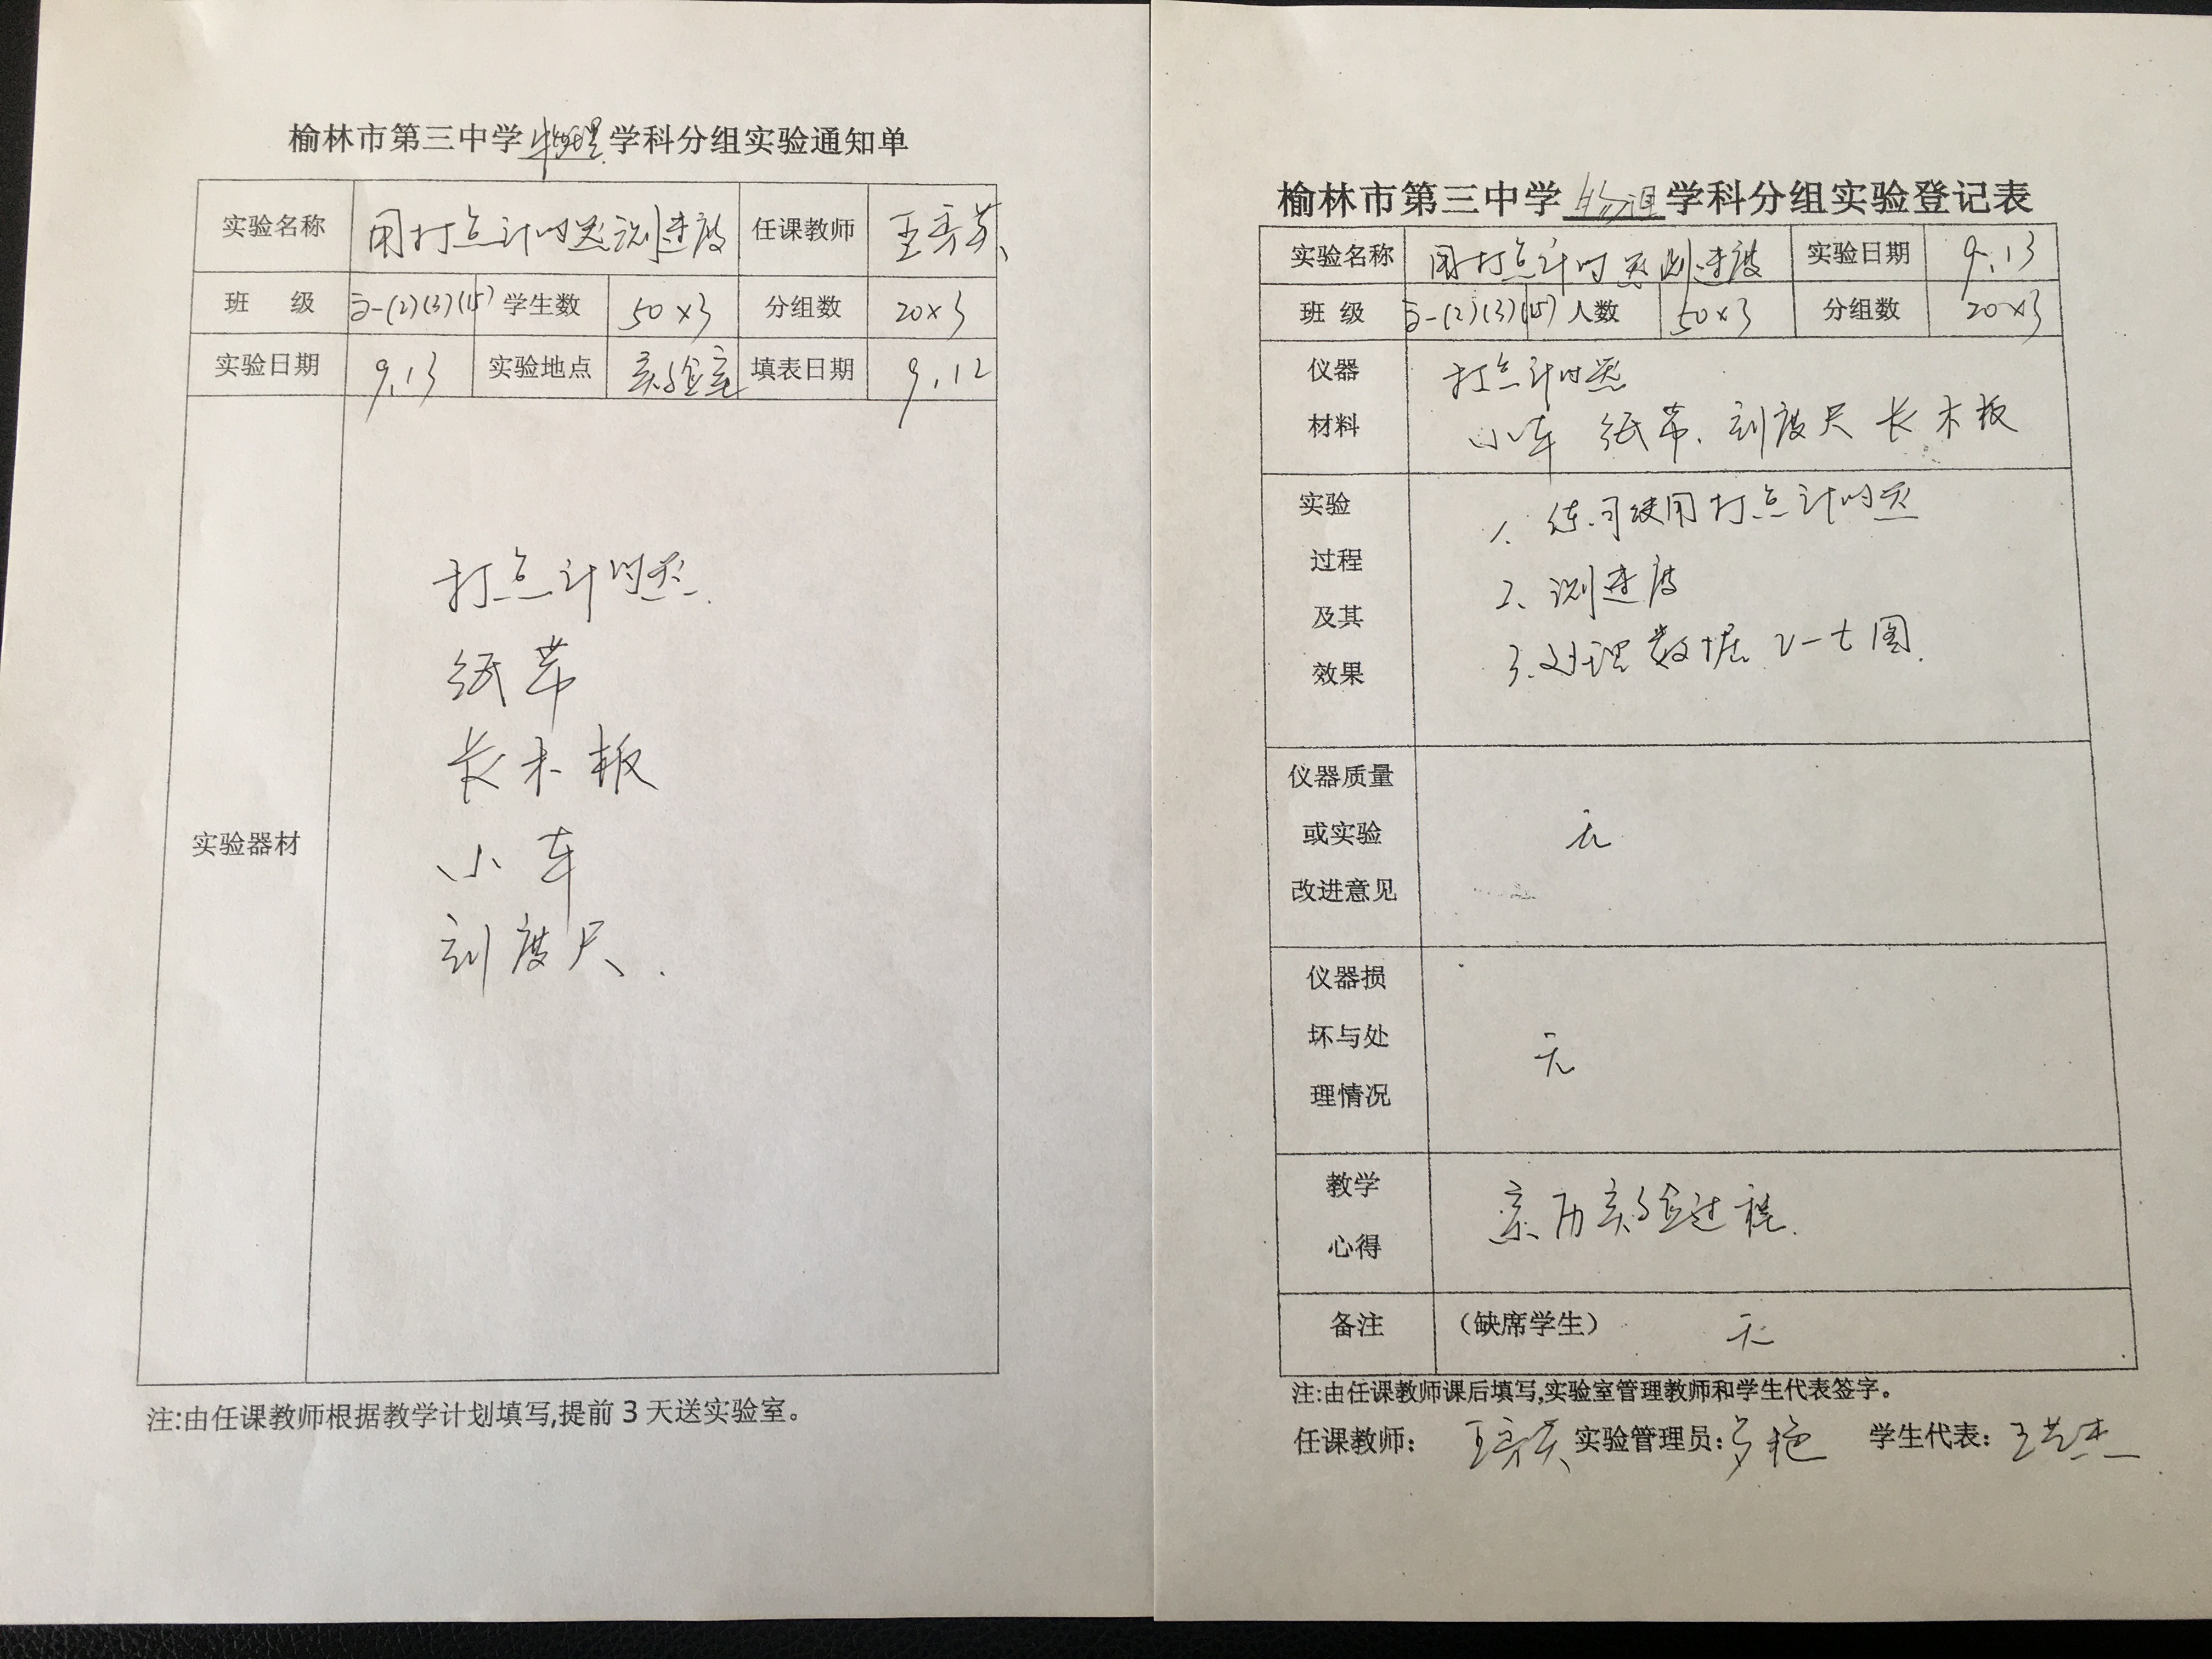 榆林市第三中学物理学科分组实验通知单
实验名称 用打点计时器测速度 任课教师 王秀英
班 级 高一(2)(3)(15) 学生数 50×3 分组数 20×3
实验日期 9.13 实验地点 实验室 填表日期 9.12
实验器材
打点计时器.
纸带
长木板
小车
刻度尺.
注:由任课教师根据教学计划填写,提前3天送实验室。
榆林市第三中学物理学科分组实验登记表
实验名称 用打点计时器测速度 实验日期 9.13
班 级 高一(2)(3)(15) 人数 50×3 分组数 20×3
仪器 打点计时器
材料 小车 纸带、刻度尺 长木板
实验 1. 练习使用打点计时器
过程
及其 2、测速度
效果 3.处理数据 v-t图.
仪器质量
或实验 无
改进意见
仪器损
坏与处 无
理情况
教学 亲历实验过程.
心得
备注 (缺席学生) 无
注:由任课教师课后填写,实验室管理教师和学生代表签字。
任课教师: 王秀英 实验管理员: 学生代表: